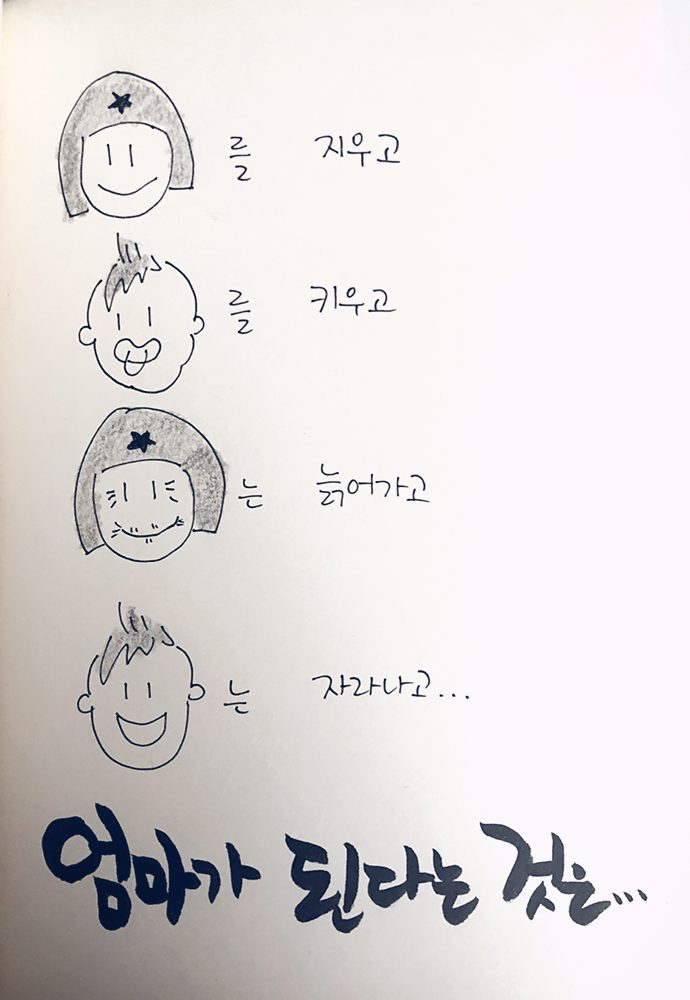 를 지우고
를 키우고
는 늙어가고
는 자라나고...
엄마가 된다는 것은...